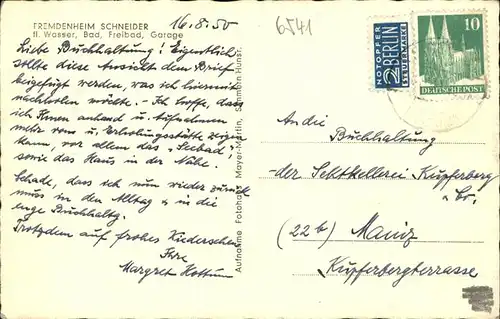 FREMDENHEIM SCHNEIDER
fl. Wasser, Bad, Freibad, Garage
16.8.50
Liebe Buchhaltung! Eigentlich
sollte diese Ansicht dem Brief
beigefügt werden, was ich hiermit
nachholen möchte. - Ich hoffe, dass
ich Ihnen anhand v. Aufnahmen
mehr von u. Erholungsstätte zeigen
kann, vor allem das "Seebad"!
sowie das Haus in der Nähe.
Schade, dass ich nun wieder zurück
muss in den Alltag u. in die
enge Buchhaltg.
Trotzdem auf frohes Wiedersehen
Ihre
Margret
Aufnahme Fotohaus Mayer-Martin, Simmern Hunsr.
6541
NOTOPFER
2 BERLIN
STEUERMARKE
10
DEUTSCHE POST
An die
Buchhaltung
der Sektkellerei Kupferberg
& Co.
(22b) Mainz
Kupferbergterrasse